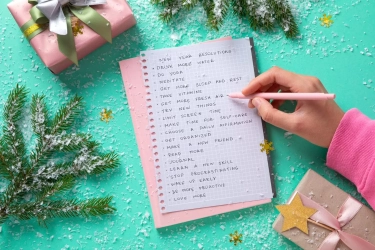 NEW YEAR RESOLUTIONS
- DRINK MORE WATER
- DO YOGA
- MEDITATE
- GET MORE SLEEP AND REST
- TAKE VITAMINS
- GET MORE FRESH AIR
- TRY NEW THINGS
- LIMIT SCREEN TIME
- MAKE TIME FOR SELF-CARE
- CHOOSE A DAILY AFFIRMATION
- GET ORGANIZED
- MAKE A NEW FRIEND
- READ MORE
- JOURNAL
- LEARN A NEW SKILL
- STOP PROCRASTINATING
- WAKE UP EARLY
- BE MORE PROACTIVE
- LOVE MORE